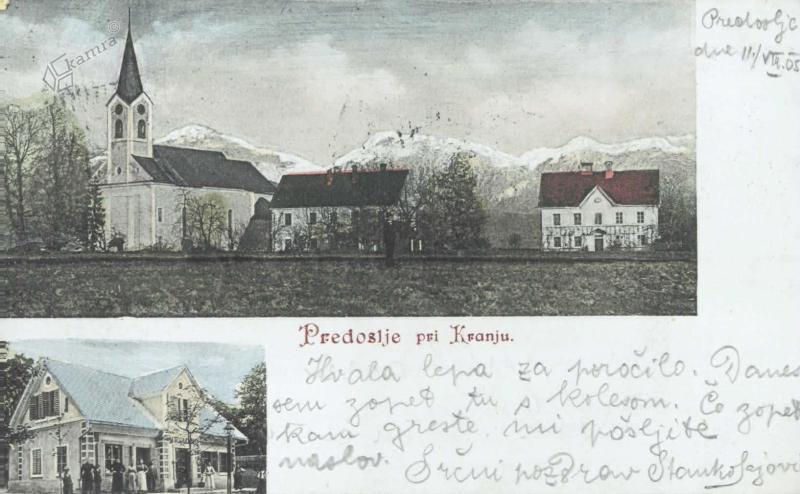 kamra
Predoslje
dne 11./VIII.05
Predoslje pri Kranju.
Hvala lepa za poročilo. Danes
sem zopet tu s kolesom. Če zopet
kam greste mi pošljite
naslov. Srčni pozdrav Stanko